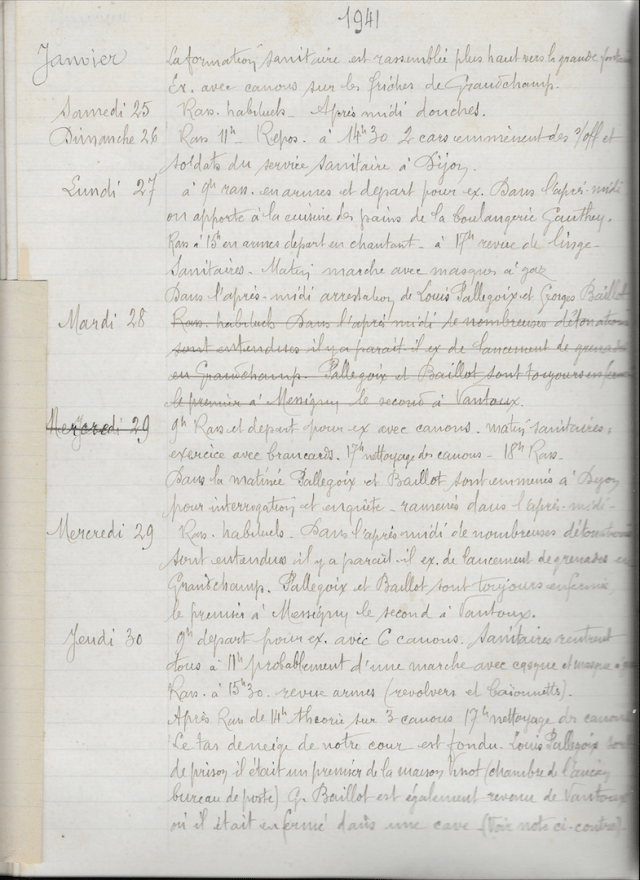 1941
Janvier La formation sanitaire est rassemblée plus haut vers la grande
Ex. avec canons sur les friches de Grandchamp.
Samedi 25 Rass. habituels. Après midi douches.
Dimanche 26 Rass 11h - Repos. à 14h30 2 cars emmènent des s/off et
soldats du service sanitaire à Dijon.
Lundi 27 à 9h rass. en armes et départ pour ex. Dans l'après-midi
on apporte à la cuisine des pains de la boulangerie Gauthey.
Rass à 15h en armes départ en chantant - à 17h revue de linge -
Sanitaires - Matin marche avec masques à gaz
Dans l'après-midi arrestation de Louis Pallegoix et Georges Baillot
Mardi 28 Rass. habituels Dans l'après midi de nombreuses détonations
sont entendues il y a parait-il ex de lancement de grenades
en Grandchamp. Pallegoix et Baillot sont toujours
le premier à Messigny le second à Vantoux.
Mercredi 29 9h Rass et départ pour ex avec canons. matin sanitaires:
exercice avec brancards. 17h nettoyage des canons - 18h Rass -
Dans la matinée Pallegoix et Baillot sont emmenés à Dijon
pour interrogation et enquête - ramenés dans l'après-midi -
Mercredi 29 Rass. habituels - Dans l'après midi de nombreuses détonations
sont entendues il y a parait-il ex. de lancement de grenades en
Grandchamp. Pallegoix et Baillot sont toujours enfermés
le premier à Messigny le second à Vantoux.
Jeudi 30 9h départ pour ex. avec 6 canons. Sanitaires rentrent
tous à 11h probablement d'une marche avec casque et masque à
Rass. à 15h30. revue armes (revolvers et baïonnettes).
Après Rass de 14h théorie sur 3 canons 17h nettoyage des canons
Le tas de neige de notre cour est fondu. Louis Pallegoix
de prison il était un premier de la maison Vinot (chambre de l'ancien
bureau de poste) G. Baillot est également revenu de Vantoux
où il était enfermé dans une cave (Voir note ci-contre).